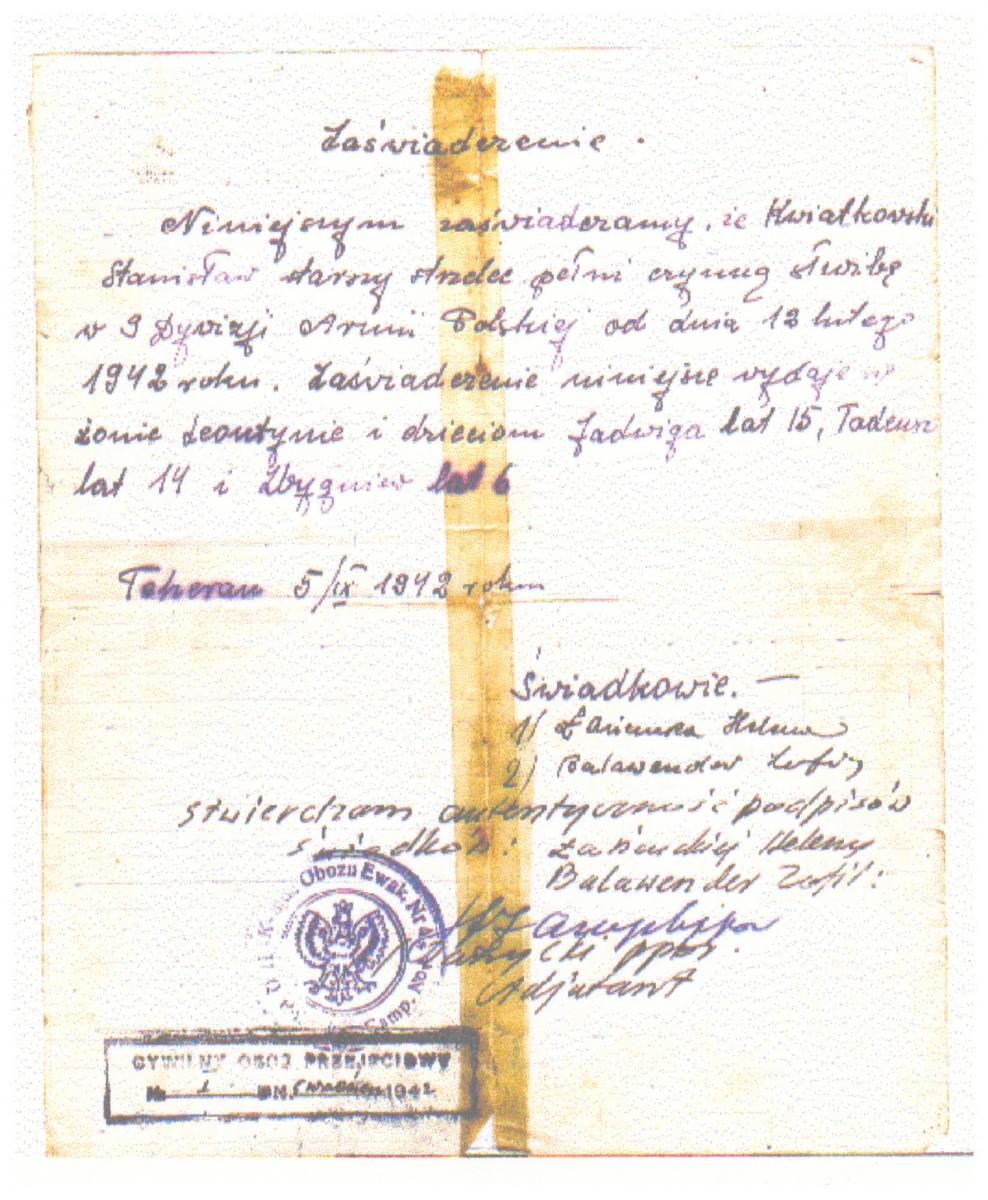 Zaświadczenie.
Niniejszym zaświadczamy, że Kwiatkowski
Stanisław starszy strzelec pełni czynną służbę
w 9 Dywizji Armii Polskiej od dnia 12 lutego
1942 roku. Zaświadczenie niniejsze wydaje się
żonie Leontynie i dzieciom Jadwiga lat 15, Tadeusz
lat 14 i Zbygniew lat 6
Teheran 5/IX 1942 roku
Świadkowie. —
1/ Helena
2) Balawender Zofia
Stwierdzam autentyczność podpisów
świadków: Heleny
Balawender Zofii:
ppor.
Adjutant
Obozu Ewak. Nr
Camp.
CYWILNY OBÓZ PRZEJŚCIOWY
№ 1 DN. 5 września 1942